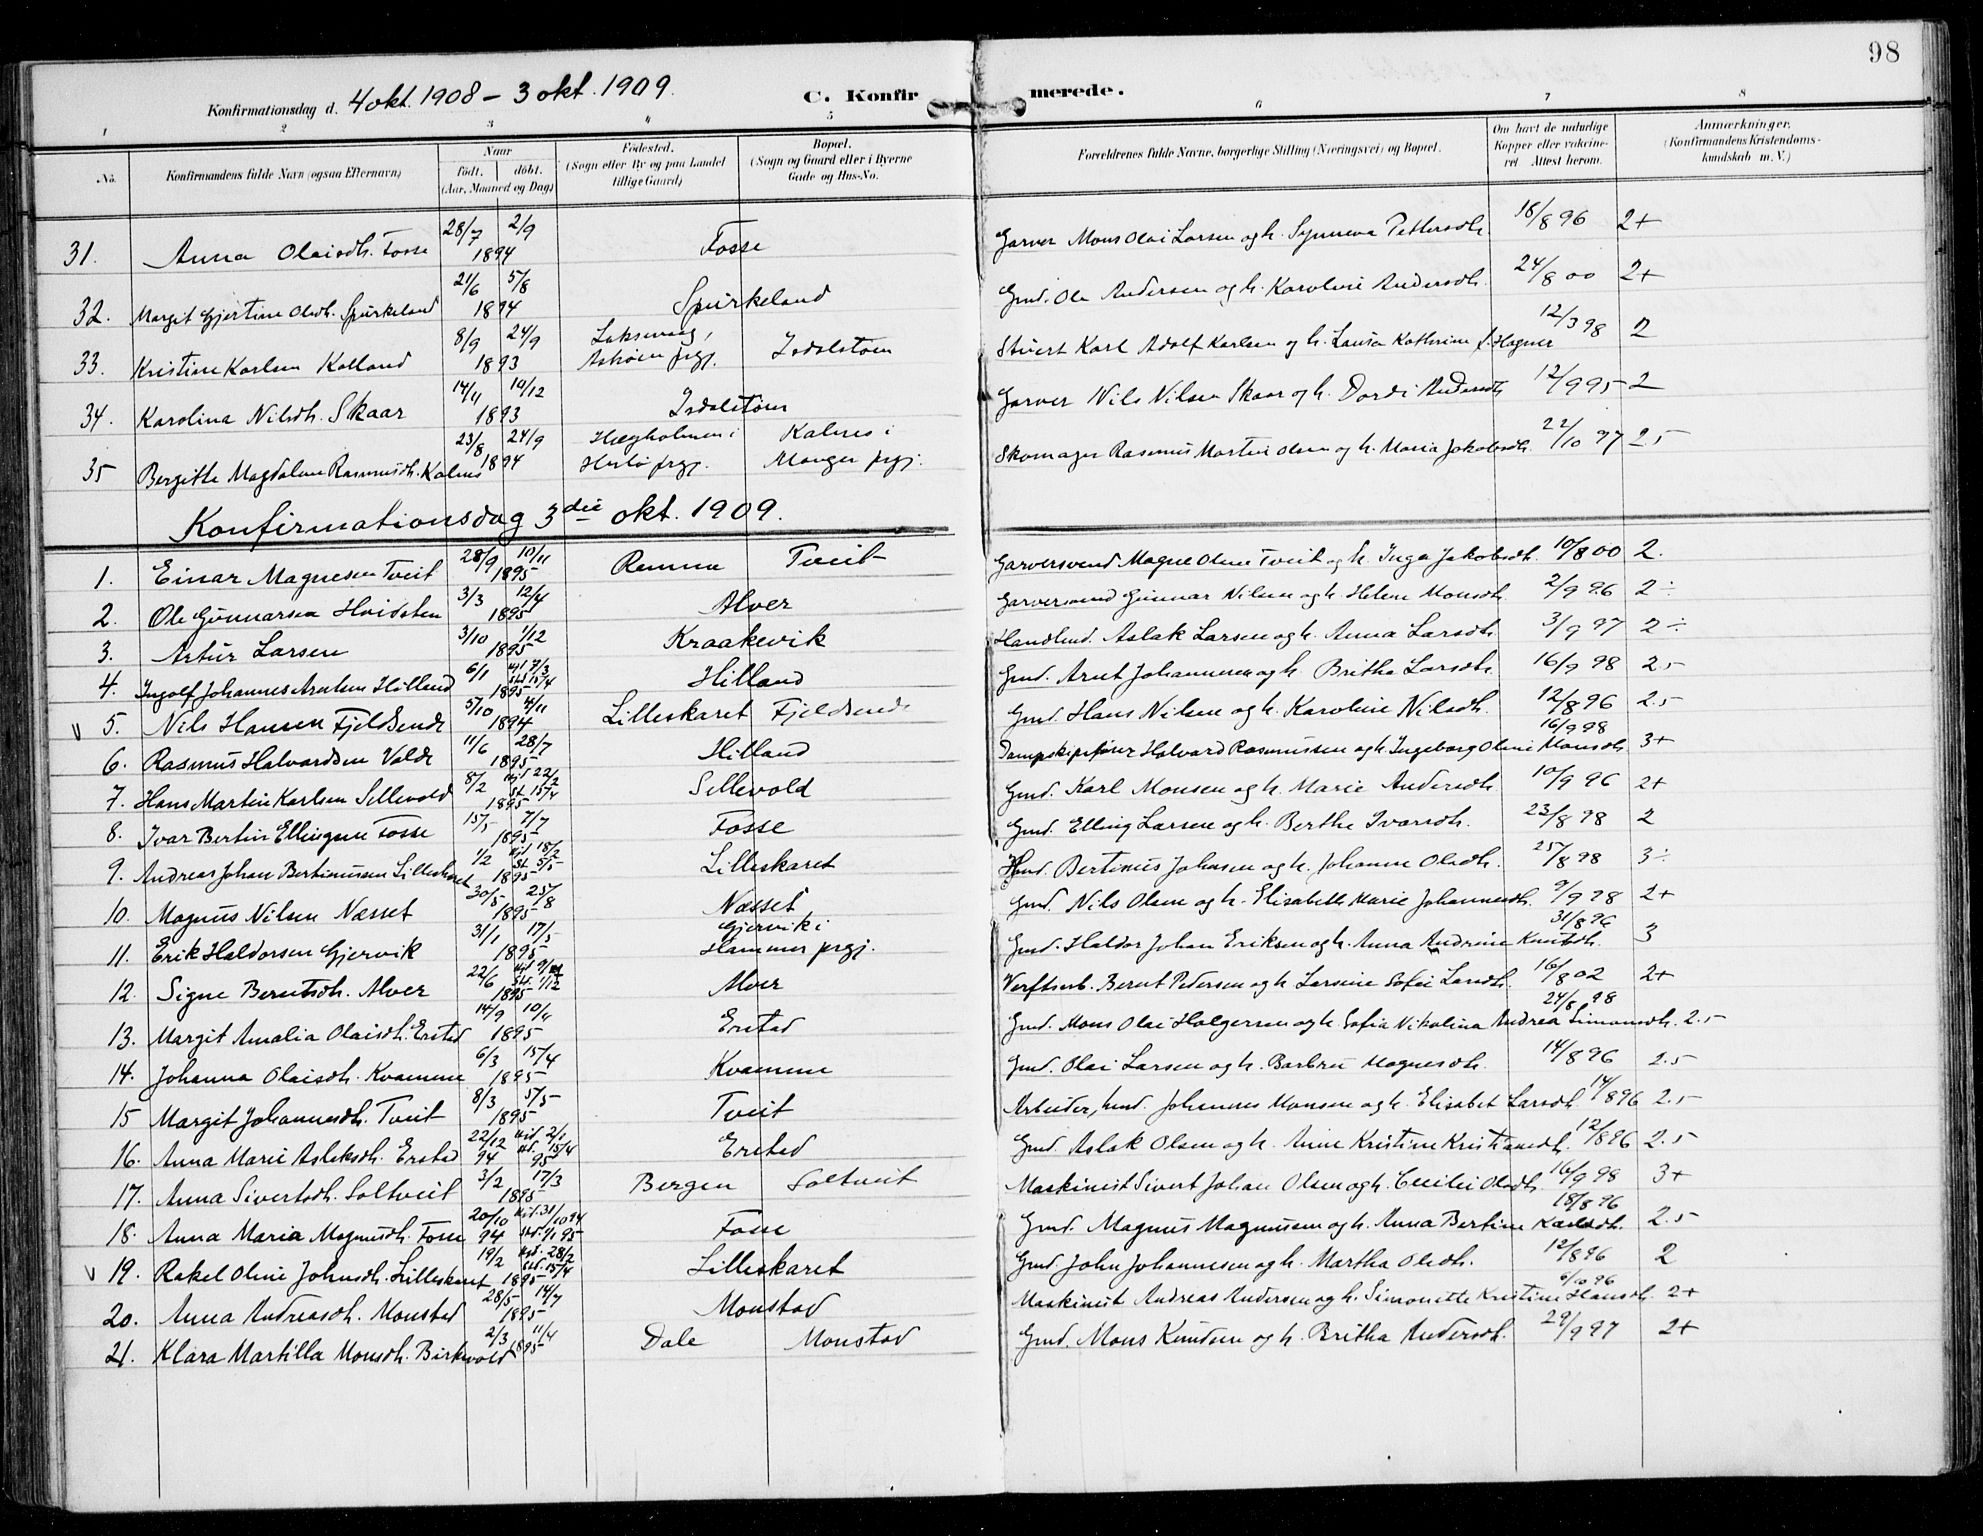 98
Konfirmationsdag d. 4 okt. 1908 – 3 okt. 1909.
C. Konfirmerede.
1 2 3 4 5 6 7 8
No.
Konfirmandens fulde Navn (ogsaa Efternavn)
Naar
født. døbt.
(Aar, Maaned og Dag)
Fødested.
(Sogn eller By og paa Landet tillige Gaard)
Bopæl.
(Sogn og Gaard eller i Byerne Gade og Hus-No.
Forældrenes fulde Navne, borgerlige Stilling (Næringsvei) og Bopæl.
Om havt de naturlige Kopper eller vaccineret Attest herom.
Anmærkninger.
(Konfirmandens Kristendomskundskab m. V.)
31. Anna Olaisdh. Fosse 28/7 2/9 1894 Fosse Garver Mons Olai Larsen og h. Synneva Pettersdh. 18/8 96 2+
32. Margit Gjertine Olsdh. Spurkeland 21/6 5/8 1894 Spurkeland Gmd. Ole Andersen og h. Karoline Andersdh. 24/8 00 2+
33. Kristine Karlsen Kolland 8/9 24/9 1893 Laksevaag, Askøen prgj. Isdalstøen Stuert Karl Adolf Karlsen og h. Laura Kathrine f. Hagner 12/3 98 2
34. Karolina Nilsdh. Skaar 14/11 19/12 1893 Isdalstøen Garver Nils Nilsen Skaar og h. Dordi Andersdh. 12/9 95 2
35 Bergitte Magdalene Rasmusdh. Kalnes 23/8 24/9 1894 Hægholmen i Herlø prgj. Kalnes i Manger prgj. Skomager Rasmus Martin Olsen og h. Maria Jakobsdh. 22/10 97 2.5
Konfirmationsdag 3die okt. 1909.
1. Einar Magnesen Tveit 28/9 10/11 1895 Remme Tveit Garversvend Magne Olsen Tveit og h. Inga Jakobsdh. 10/8 00 2.
2. Ole Gunnarsen Hvidsten 3/3 12/4 1895 Alver Garversvend Gunnar Nilsen og h. Helene Monsdh. 2/9 96 2÷
3. Artur Larsen 3/10 1/12 1895 Kraakevik Handlend. Aslak Larsen og h. Anna Larsdh. 3/9 97 2÷
4. Ingolf Johannes Arntsen Hilland 6/1 1895 Hilland Gmd. Arnt Johannesen og h. Britha Larsdh. 16/9 98 2.5
v 5. Nils Hansen Fjeldsende 5/10 4/11 1894 Lilleskaret Fjeldsende Gmd. Hans Nilsen og h. Karoline Nilsdh. 12/8 96 2.5
6. Rasmus Halvardsen Valde 11/6 28/7 1895 Hilland Dampskipsfører Halvard Rasmussen og h. Ingeborg Oline Monsdh. 16/9 98 3+
7. Hans Martin Karlsen Sellevold 8/2 22/2 15/4 1895 Sellevold Gmd. Karl Monsen og h. Marie Andersdh. 10/9 96 2+
8. Ivar Bertin Ellingsen Fosse 15/5 7/7 1895 Fosse Gmd. Elling Larsen og h. Berthe Ivarsdh. 23/8 98 2
9. Andreas Johan Bertinusen Lilleskaret 1/2 18/2 5/5 1895 Lilleskaret Hmd. Bertinus Johnsen og h. Johanne Olsdh. 25/8 98 3÷
10. Magnus Nilsen Næsset 30/5 25/8 1895 Næsset Gmd. Nils Olsen og h. Elisabeth Marie Johannesdh. 9/9 98 2+
11. Erik Haldorsen Gjervik 31/1 17/5 1895 Gjervik i Hammer prgj. Gmd. Haldor Johan Eriksen og h. Anna Andrine Knutsdh. 31/8 96 3
12. Signe Berntsdh. Alver 22/6 1/12 1895 Alver Verftsarb. Bernt Pedersen og h. Larsine Sofie Larsdh. 16/8 02 2+
13. Margit Amalia Olaisdh. Erstad 14/9 10/11 1895 Erstad Gmd. Mons Olai Holgersen og h. Sofia Nikolina Andrea Simonsdh. 24/8 98 2.5
14. Johanna Olaisdh. Kvamme 6/3 15/4 1895 Kvamme Gmd. Olai Larsen og h. Barbru Magnesdh. 14/8 96 2.5
15 Margit Johannesdh. Tveit 8/3 5/5 1895 Tveit Arbeider, hmd. Johannes Monsen og h. Elisabet Larsdh. 14/8 96 2.5
16. Anna Marie Aslaksdh. Erstad 22/12 94 2/1 15/4 95 Erstad Gmd. Aslak Olsen og h. Anne Kristine Kristiansdh. 12/8 96 2.5
17. Anna Sivertsdh. Soltveit 3/2 17/3 1895 Bergen Soltveit Maskinist Sivert Johan Olsen og h. Cecilie Olsdh. 16/9 98 3+
18. Anna Maria Magnusdh. Fosse 20/10 94 31/10 94 1/1 95 Fosse Gmd. Magnus Magnusen og h. Anna Bertine Karlsdh. 18/8 96 2.5
v 19. Rakel Oline Johnsdh. Lilleskaret 19/2 28/2 15/4 1895 Lilleskaret Gmd. John Johannesen og h. Martha Olsdh. 12/8 96 2
20. Anna Andreasdh. Monstad 28/5 14/7 1895 Monstad Maskinist Andreas Andersen og h. Simonette Kristine Hansdh. 6/10 96 2+
21. Klara Martilla Monsdh. Birkevold 2/3 11/4 1895 Dale Monstad Gmd. Mons Knudsen og h. Britha Andersdh. 29/9 97 2+